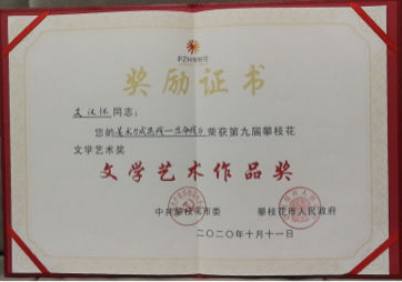 奖励证书
同志：
您的 荣获第九届攀枝花
文学艺术奖
文学艺术作品奖
中共攀枝花市委 攀枝花市人民政府
二〇二〇年十月十一日